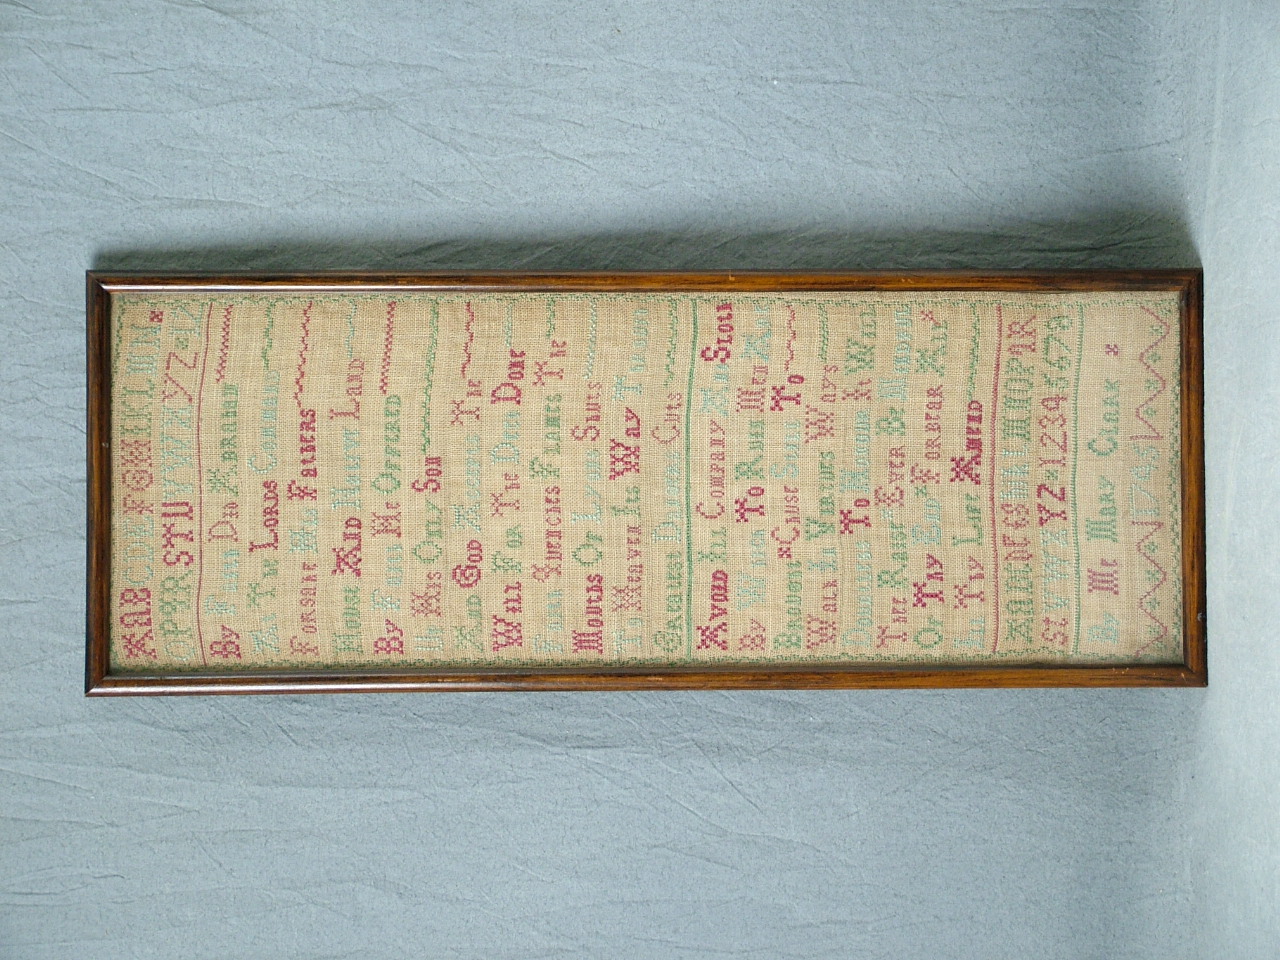 ABCDEFGHIKLMN
OPQRSTUVWXYZ
By Faith Did Abraham
At The Lords Command
Forsake His Fathers
House And Native Land
By Faith He Offered
Up His Only Son
And God Accepts The
Will For The Deed Done
Faith Quencies Flames The
Mouths Of Lyons Shuts
To Heaven Its Way Through
Greatest Dangers Cuts
Avoid Ill Company And Sloth
By Which To Ruin Men Are
Brought Cause Still To
Walk In Vertues Way's
To Honour It Will
Thee Raise Ever Be
Of Thy End Forbear
Thy Life Amend
KLMNOPQR
ST VWXYZ 12345678
By Me Mary Clark